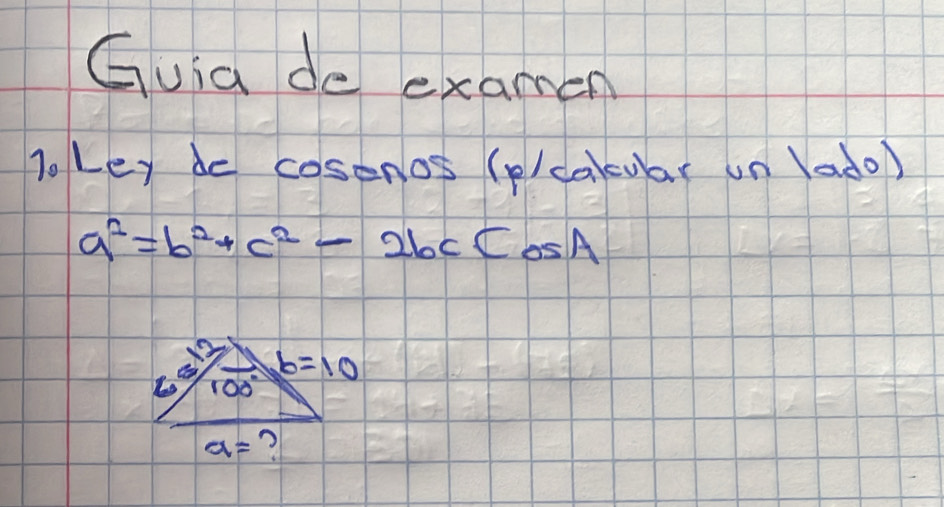 Guia de examen
1. Ley de cosenos (p/calcular un lado)
a² = b² + c² - 2bc CosA
c=12
b=10
100°
a=?